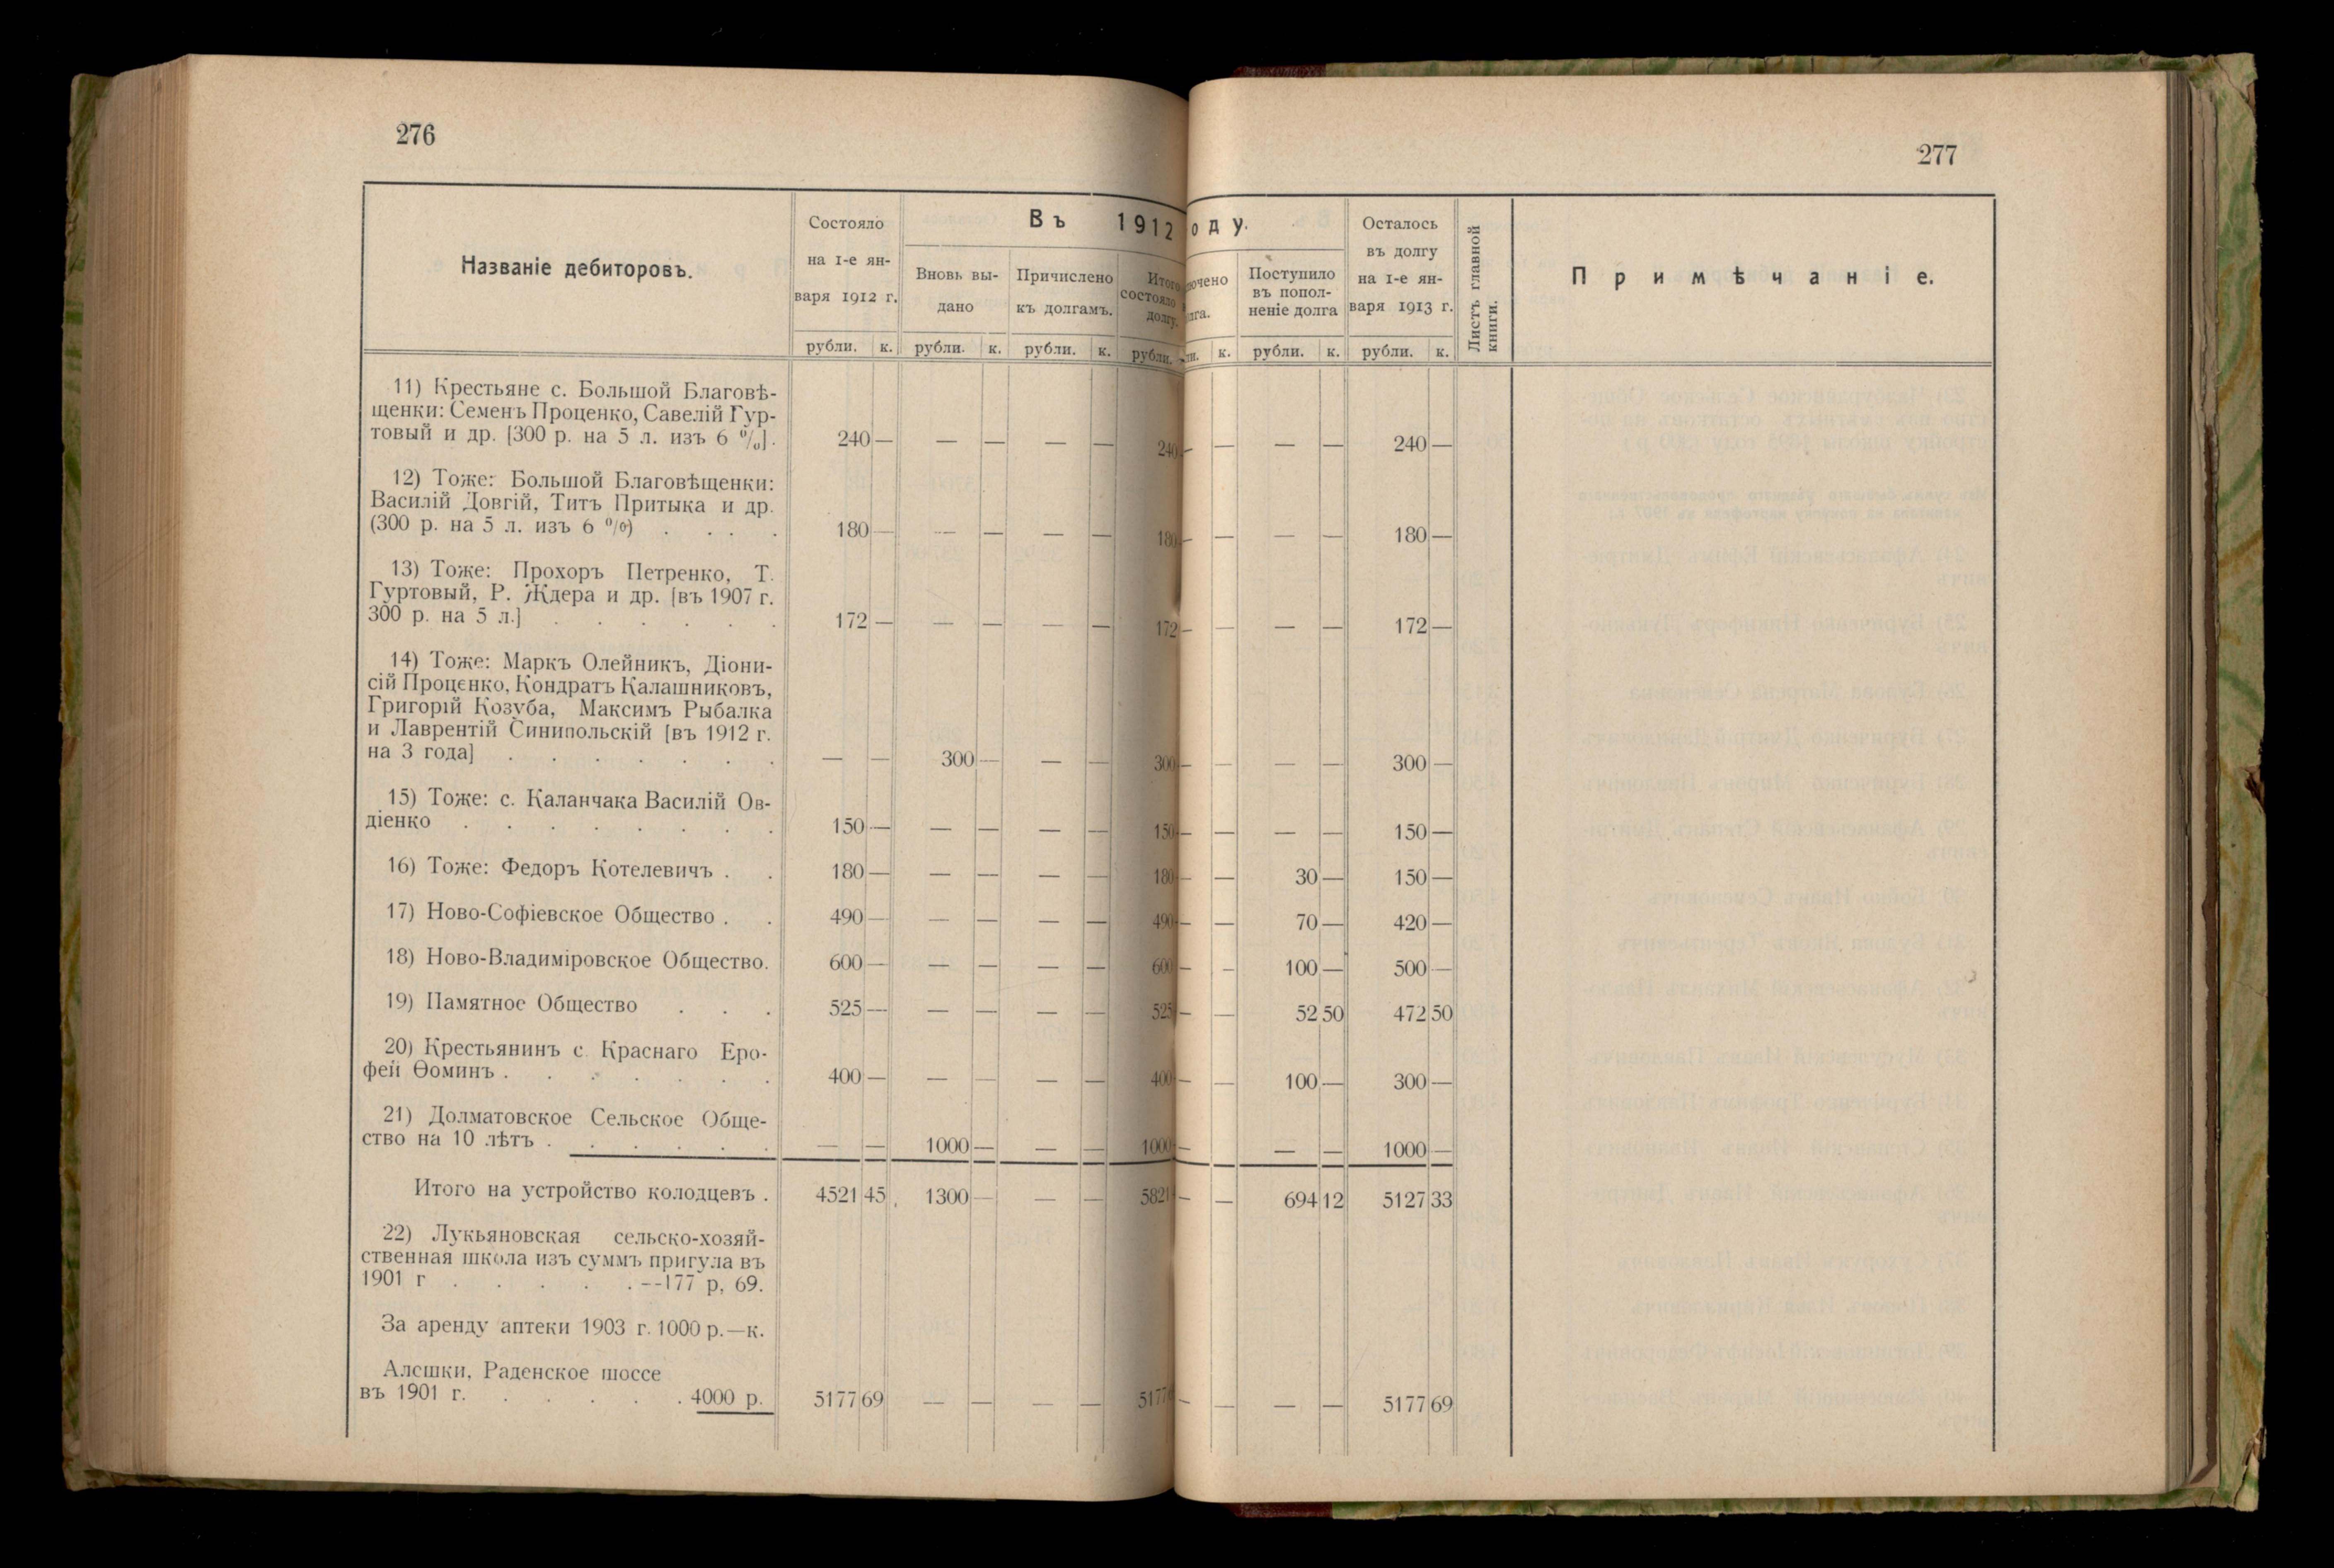 276
277
Названіе дебиторовъ.
Состояло
на 1-е ян-
варя 1912 г.
Въ 1912 оду.
Вновь вы-
дано
Причислено
къ долгамъ.
Итого
состояло
долгу.
Поступило
въ попол-
неніе долга
Осталось
въ долгу
на 1-е ян-
варя 1913 г.
Листъ главной
книги.
Примѣчаніе.
рубли. к. рубли. к. рубли. к. рубли. к. рубли. к. рубли. к.
11) Крестьяне с. Большой Благовѣ-
щенки: Семенъ Проценко, Савелій Гур-
товый и др. [300 р. на 5 л. изъ 6 %]. 240 — — — — — 240 — — — — 240 —
12) Тоже: Большой Благовѣщенки:
Василій Довгій, Титъ Притыка и др.
(300 р. на 5 л. изъ 6 %) . . . . 180 — — — — — 180 — — — — 180 —
13) Тоже: Прохоръ Петренко, Т.
Гуртовый, Р. Ждера и др. [въ 1907 г.
300 р. на 5 л.] . . . . . . 172 — — — — — 172 — — — — 172 —
14) Тоже: Маркъ Олейникъ, Діони-
сій Проценко, Кондратъ Калашниковъ,
Григорій Козуба, Максимъ Рыбалка
и Лаврентій Синипольскій [въ 1912 г.
на 3 года] . . . . . . . — — 300 — — — 300 — — — — 300 —
15) Тоже: с. Каланчака Василій Ов-
діенко . . . . . . . . 150 — — — — — 150 — — — — 150 —
16) Тоже: Федоръ Котелевичъ . . 180 — — — — — 180 — — 30 — 150 —
17) Ново-Софіевское Общество . . 490 — — — — — 490 — — 70 — 420 —
18) Ново-Владиміровское Общество. 600 — — — — — 600 — — 100 — 500 —
19) Памятное Общество . . . 525 — — — — — 525 — — 52 50 472 50
20) Крестьянинъ с. Краснаго Еро-
фей Ѳоминъ . . . . . . . 400 — — — — — 400 — — 100 — 300 —
21) Долматовское Сельское Обще-
ство на 10 лѣтъ . . . . . . — — 1000 — — — 1000 — — — — 1000 —
Итого на устройство колодцевъ . 4521 45 1300 — — — 5821 — — 694 12 5127 33
22) Лукьяновская сельско-хозяй-
ственная школа изъ суммъ пригула въ
1901 г . . . . . .--177 р, 69.
За аренду аптеки 1903 г. 1000 р.—к.
Алешки, Раденское шоссе
въ 1901 г. . . . . . 4000 р. 5177 69 — — — — 5177 — — — — 5177 69